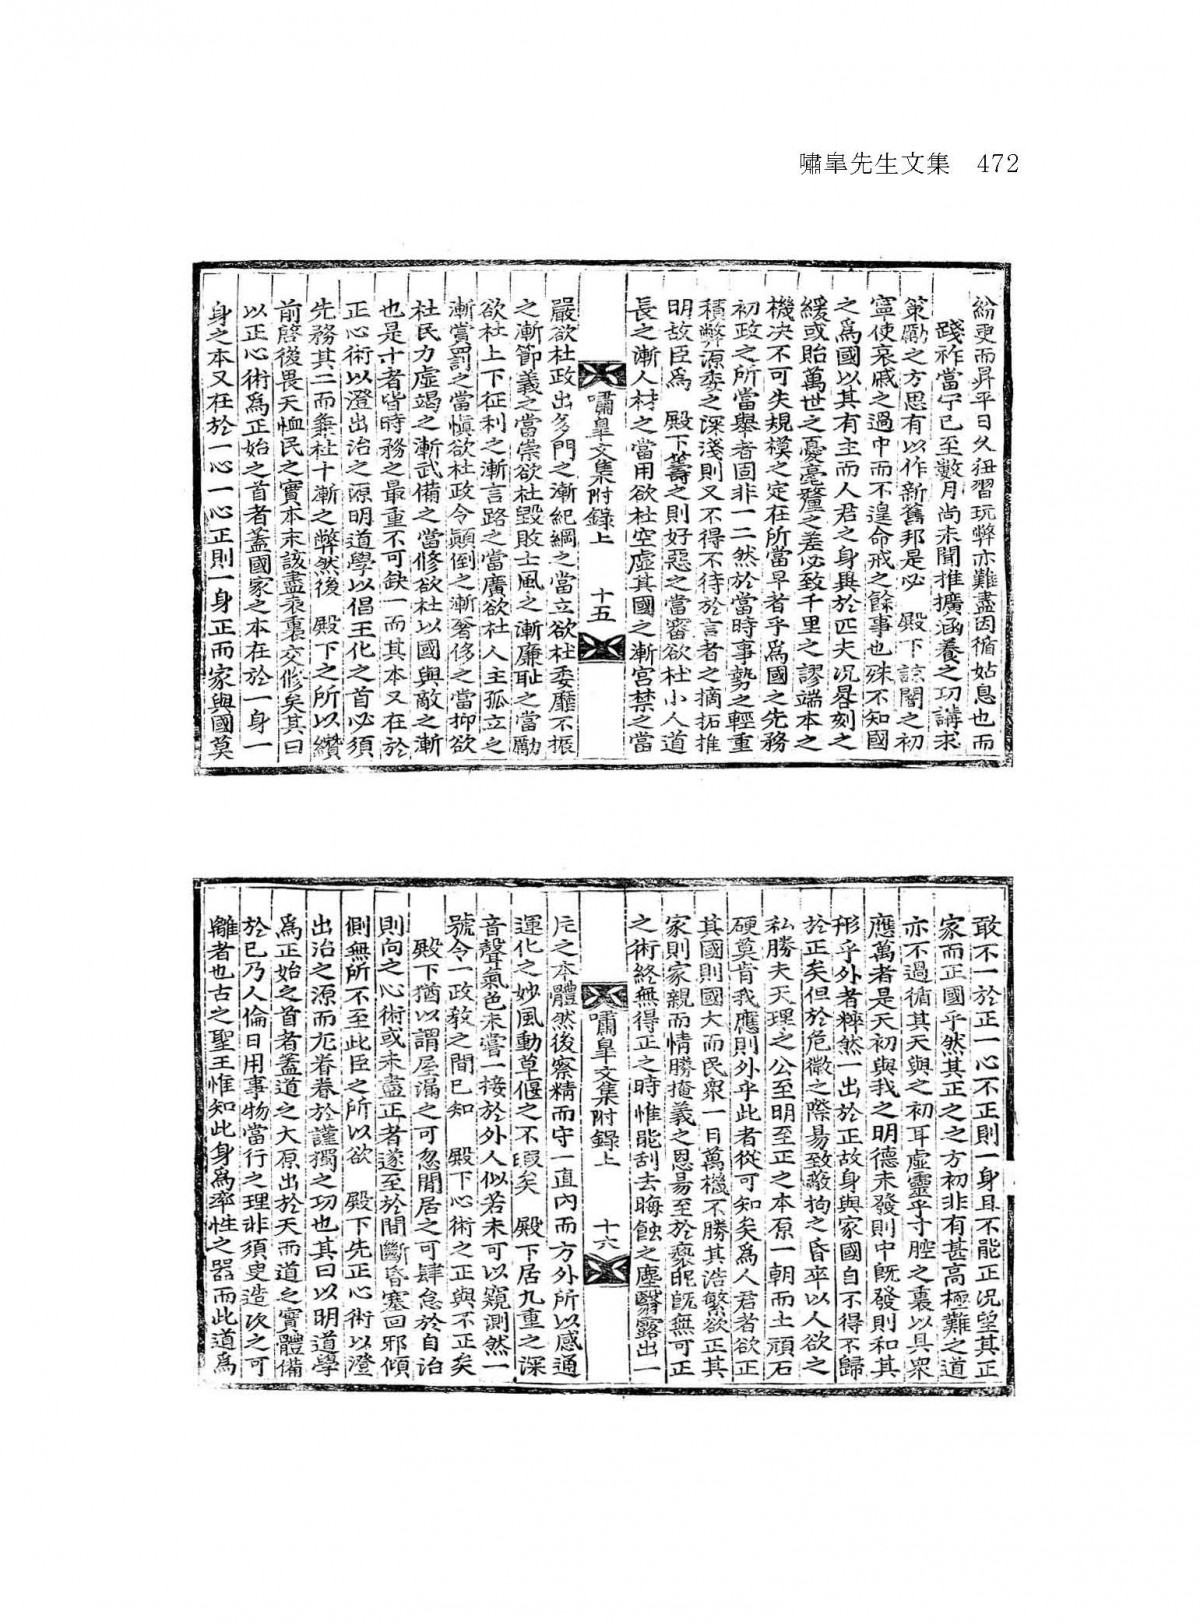 嘯皐先生文集 472
紛更而昇平日久狃習玩弊亦難盡因循姑息也而
踐祚當宁已至數月尚未聞推擴涵養之功講求
策勵之方思有以作新舊邦是必 殿下諒闇之初
寧使哀戚之過中而不遑命戒之餘事也殊不知國
之爲國以其有主而人君之身異於匹夫況晷刻之
緩或貽萬世之憂毫釐之差必致千里之謬端本之
機決不可失規模之定在所當早者乎爲國之先務
初政之所當擧者固非一二然於當時事勢之輕重
積弊源委之深淺則又不得不待於言者之摘拓推
明故臣爲 殿下籌之則好惡之當審欲杜小人道
長之漸人材之當用欲杜空虛其國之漸宮禁之當
嘯皐文集附錄上 十五
嚴欲杜政出多門之漸紀綱之當立欲杜委靡不振
之漸節義之當崇欲杜毀敗士風之漸廉恥之當勵
欲杜上下征利之漸言路之當廣欲杜人主孤立之
漸賞罰之當愼欲杜政令顚倒之漸奢侈之當抑欲
杜民力虛竭之漸武備之當修欲杜以國與敵之漸
也是十者皆時務之最重不可缺一而其本又在於
正心術以澄出治之源明道學以倡王化之首必須
先務其二而兼杜十漸之弊然後 殿下之所以纘
前啓後畏天恤民之實本末該盡表裏交修矣其曰
以正心術爲正始之首者蓋國家之本在於一身一
身之本又在於一心一心正則一身正而家與國莫
敢不一於正一心不正則一身且不能正況望其正
家而正國乎然其正之之方初非有甚高極難之道
亦不過循其天與之初耳虛靈乎寸腔之裏以具衆
應萬者是天初與我之明德未發則中旣發則和其
形乎外者粹然一出於正故身與家國自不得不歸
於正矣但於危微之際易致蔽拘之昏率以人欲之
私勝夫天理之公至明至正之本原一朝而土頑石
硬莫肯我應則外乎此者從可知矣爲人君者欲正
其國則國大而民衆一日萬機不勝其浩繁欲正其
家則家親而情勝掩義之恩易至於褻昵旣無可正
之術終無得正之時惟能刮去晦蝕之塵翳露出一
嘯皐文集附錄上 十六
片之本體然後察精而守一直內而方外所以感通
運化之妙風動草偃之不瑕矣 殿下居九重之深
音聲氣色未嘗一接於外人似若未可以窺測然一
號令一政敎之間已知 殿下心術之正與不正矣
殿下猶以謂屋漏之可忽閒居之可肆怠於自治
則向之心術或未盡正者遂至於間斷昏塞回邪傾
側無所不至此臣之所以欲 殿下先正心術以澄
出治之源而尤眷眷於謹獨之功也其曰以明道學
爲正始之首者蓋道之大原出於天而道之實體備
於已乃人倫日用事物當行之理非須臾造次之可
離者也古之聖王惟知此身爲率性之器而此道爲